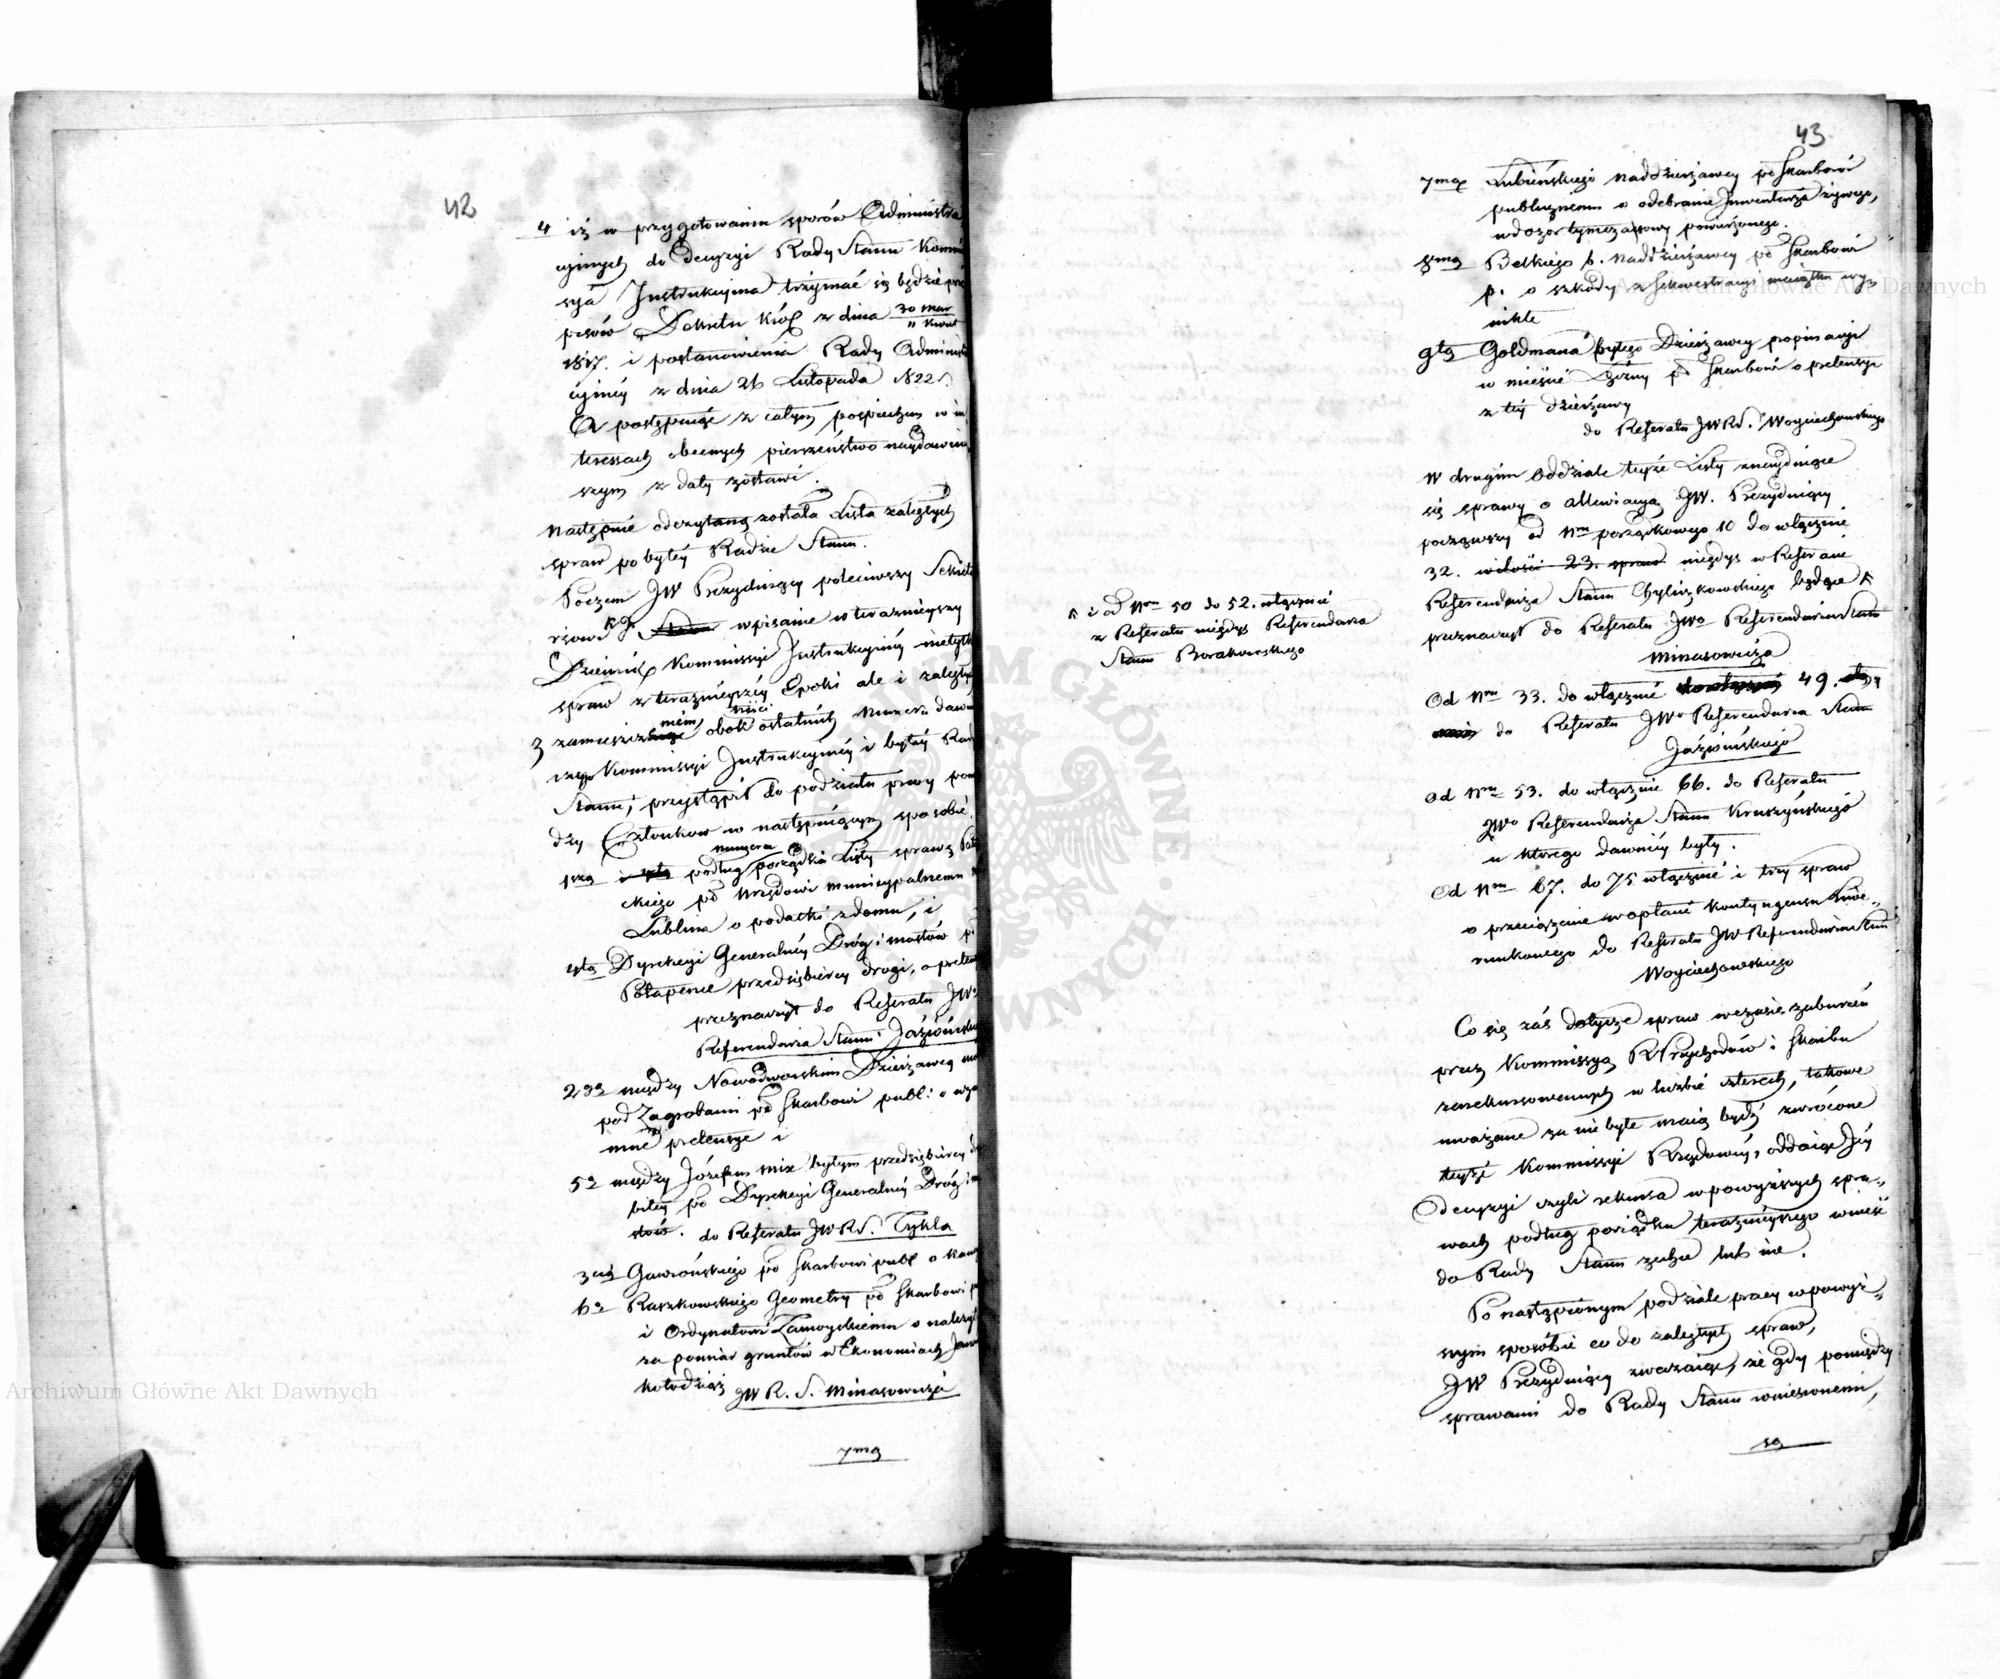 42
4 iż w przygotowaniu sporów Administra
cyinych do Decyzyi Rady Stanu Kommi
syia Instrukcyina trzymać się będzie prze
pisów Dekretu Król z dnia 30 Mar
11 Kwiet
1817. i postanowienia Rady Administra
cyinéy z dnia 26 Listopada 1822 r.
A postępuiąc z całym pospiechem w in
teressach obecnych pierwszeństwo naydawniey
szym z daty zostawi.
Następnie odczytaną została Lista zaległych
spraw po byłéy Radzie Stanu.
Poczem JW Prezyduiący poleciwszy Sekreta
rzowi wpisanie w teraznieyszy
Dziennik Kommissyi Instrukcyinéy nietylko
spraw z teraznieyszéy Epoki ale i zaległych
z zamieszczeniem obok ostatnich Numeru daw
Kommissyi Instrukcyinéy i byłéy Rady
Stanu, przystąpił do podziału pracy pomię
dzy Członków w następuiącym sposobie.
numera
1szą podług porządku Listy sprawę
ckiego pko Urzędowi municypalnemu
Lublina o podatki z domu, i
4tą Dyrekcyi Generalnéy Dróg i mostów
Potapenie przedsiębiercy drogi, o preten
przeznaczył do Referatu JWo
Referendarza Stanu Jaźwińskie
2gą między Nowodworskim Dzierżawcą
pod Zagrobami pko Skarbowi publ: o wza
mne pretensye i
5ą między Józefem Mix byłym przedsiębiercy
pko Dyrekcyi Generalnéy Dróg i
stów. do Referatu JWRS. Cykla
3cią Gawrońskiego pko Skarbowi publ o
6ą Raszkowskiego Geometry pko Skarbowi p
i Ordynatowi Zamoyskiemu o należyt
za pomiar gruntów w Ekonomiach
JW R. S. Minasowicza
7mą
43
7mą Lubieńskiego naddzierżawcy pko Skarbowi
publicznemu o odebranie Inwentarza żywego,
w dozór tymczasowy powierzonego.
8mą Belkiego b. naddzierżawcy pko Skarbowi
p. o szkody z sekwestracyi maiątku wy„
nikłe
9tą Goldmana byłego Dzierżawcy propinacyi
w mieście pko Skarbowi o pretensye
z téy dzierżawy
do Referatu JWRS. Woyciechowskiego
W drugim Oddziale teyże Listy znayduiące
się sprawy o allewiacyą JW. Prezyduiący
począwszy od Nru porządkowego 10 do włącznie
32. w ilości 23. spraw niegdyś w Referacie
Referendarza Stanu Chyliczkowskiego będące
przeznaczył do Referatu JWo Referendarza Stanu
Minasowicza
i od Nru 50 do 52. włącznie
z Referatu niegdyś Referendarza
Stanu Borakowskiego
Od Nru 33. do włącznie 49.
do Referatu JWo Referendarza Stanu
Jaźwińskiego
Od Nru 53. do włącznie 66. do Referatu
JWo Referendarza Stanu Kruszyńskiego
u którego dawniéy były.
Od Nru 67. do 75 włącznie i trzy spraw
o przeciążenie w opłacie kontyngensu liwe„
runkowego do Referatu JW Referendarza Stanu
Woyciechowskiego
Co się zaś dotycze spraw w czasie zaburzeń
przez Kommissyą R Przychodów i Skarbu
zarekursowanych w liczbie czterech, takowe
uważane za niebyłe maią bydź zwrócone
teyże Kommissyi Rządowéy, oddaiąc Jéy
Decyzyi czyli rekursa w powyższych spra„
wach podług porządku teraznieyszego wnieść
do Rady Stanu zechce lub nie.
Po nastąpionym podziale pracy w powyż„
szym sposobie co do zaległych spraw,
JW Prezyduiący zważaiąc, że gdy pomiędzy
sprawami do Rady Stanu wniesionemi,
są